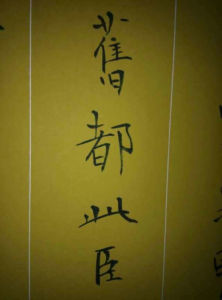 舊都此臣